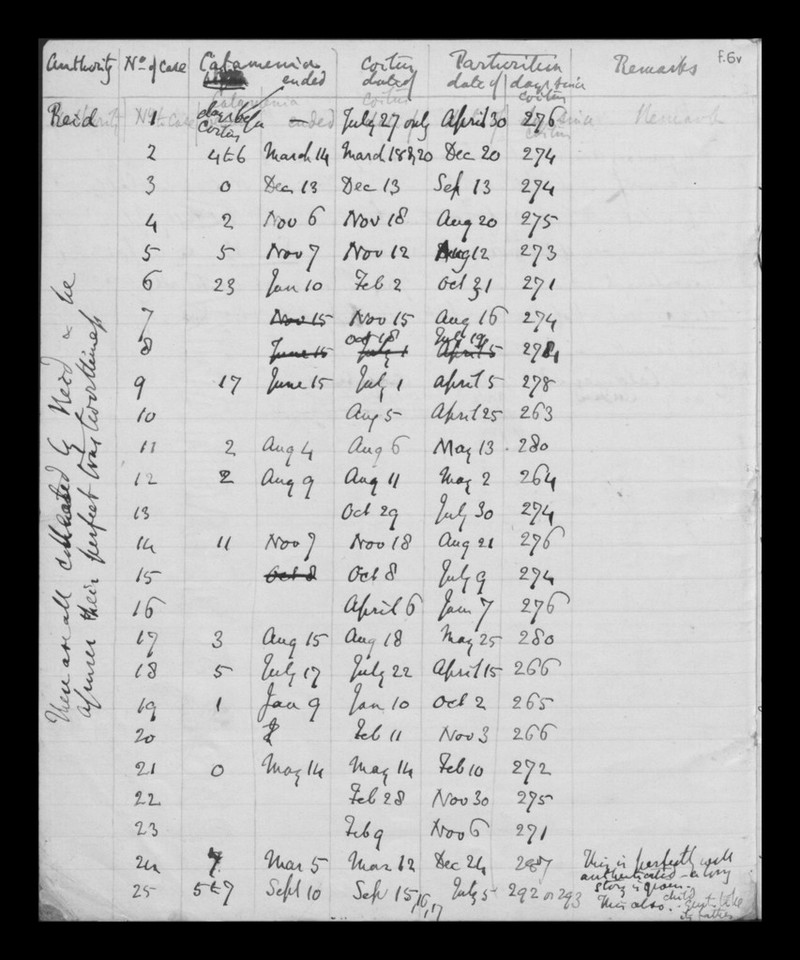 f.6v
Authority No of Case Catamenia ended Coitus date of Parturition date of days since coitus Remarks
Reid 1 days before coitus — July 27 only April 30 276
2 4 to 6 March 14 March 18 & 20 Dec 20 274
3 0 Dec 13 Dec 13 Sep 13 274
4 2 Nov 6 Nov 18 Aug 20 275
5 5 Nov 7 Nov 12 Aug 12 273
6 23 Jan 10 Feb 2 Oct 31 271
7 Nov 15 Nov 15 Aug 16 274
Oct 18 July 19
8 June 15 July 1 April 5 274
9 17 June 15 July 1 April 5 278
10 Aug 5 April 25 263
11 2 Aug 4 Aug 6 May 13 280
12 2 Aug 9 Aug 11 May 2 264
13 Oct 29 July 30 274
14 11 Nov 7 Nov 18 Aug 21 276
15 Oct 8 Oct 8 July 9 274
16 April 6 Jan 7 276
17 3 Aug 15 Aug 18 May 25 280
18 5 July 17 July 22 April 15 266
19 1 Jan 9 Jan 10 Oct 2 265
20 Feb 11 Nov 3 266
21 0 May 14 May 14 Feb 10 272
22 Feb 28 Nov 30 275
23 Feb 9 Nov 6 271
24 7 Mar 5 Mar 12 Dec 24 287 This is perfectly well
authenticated - a long
story is given.
25 5 to 7 Sept 10 Sep 15, 16, 17 July 5 292 or 293 This also. child quite like
its father
These are all collected by Reid & he
affirms their perfect trustworthiness